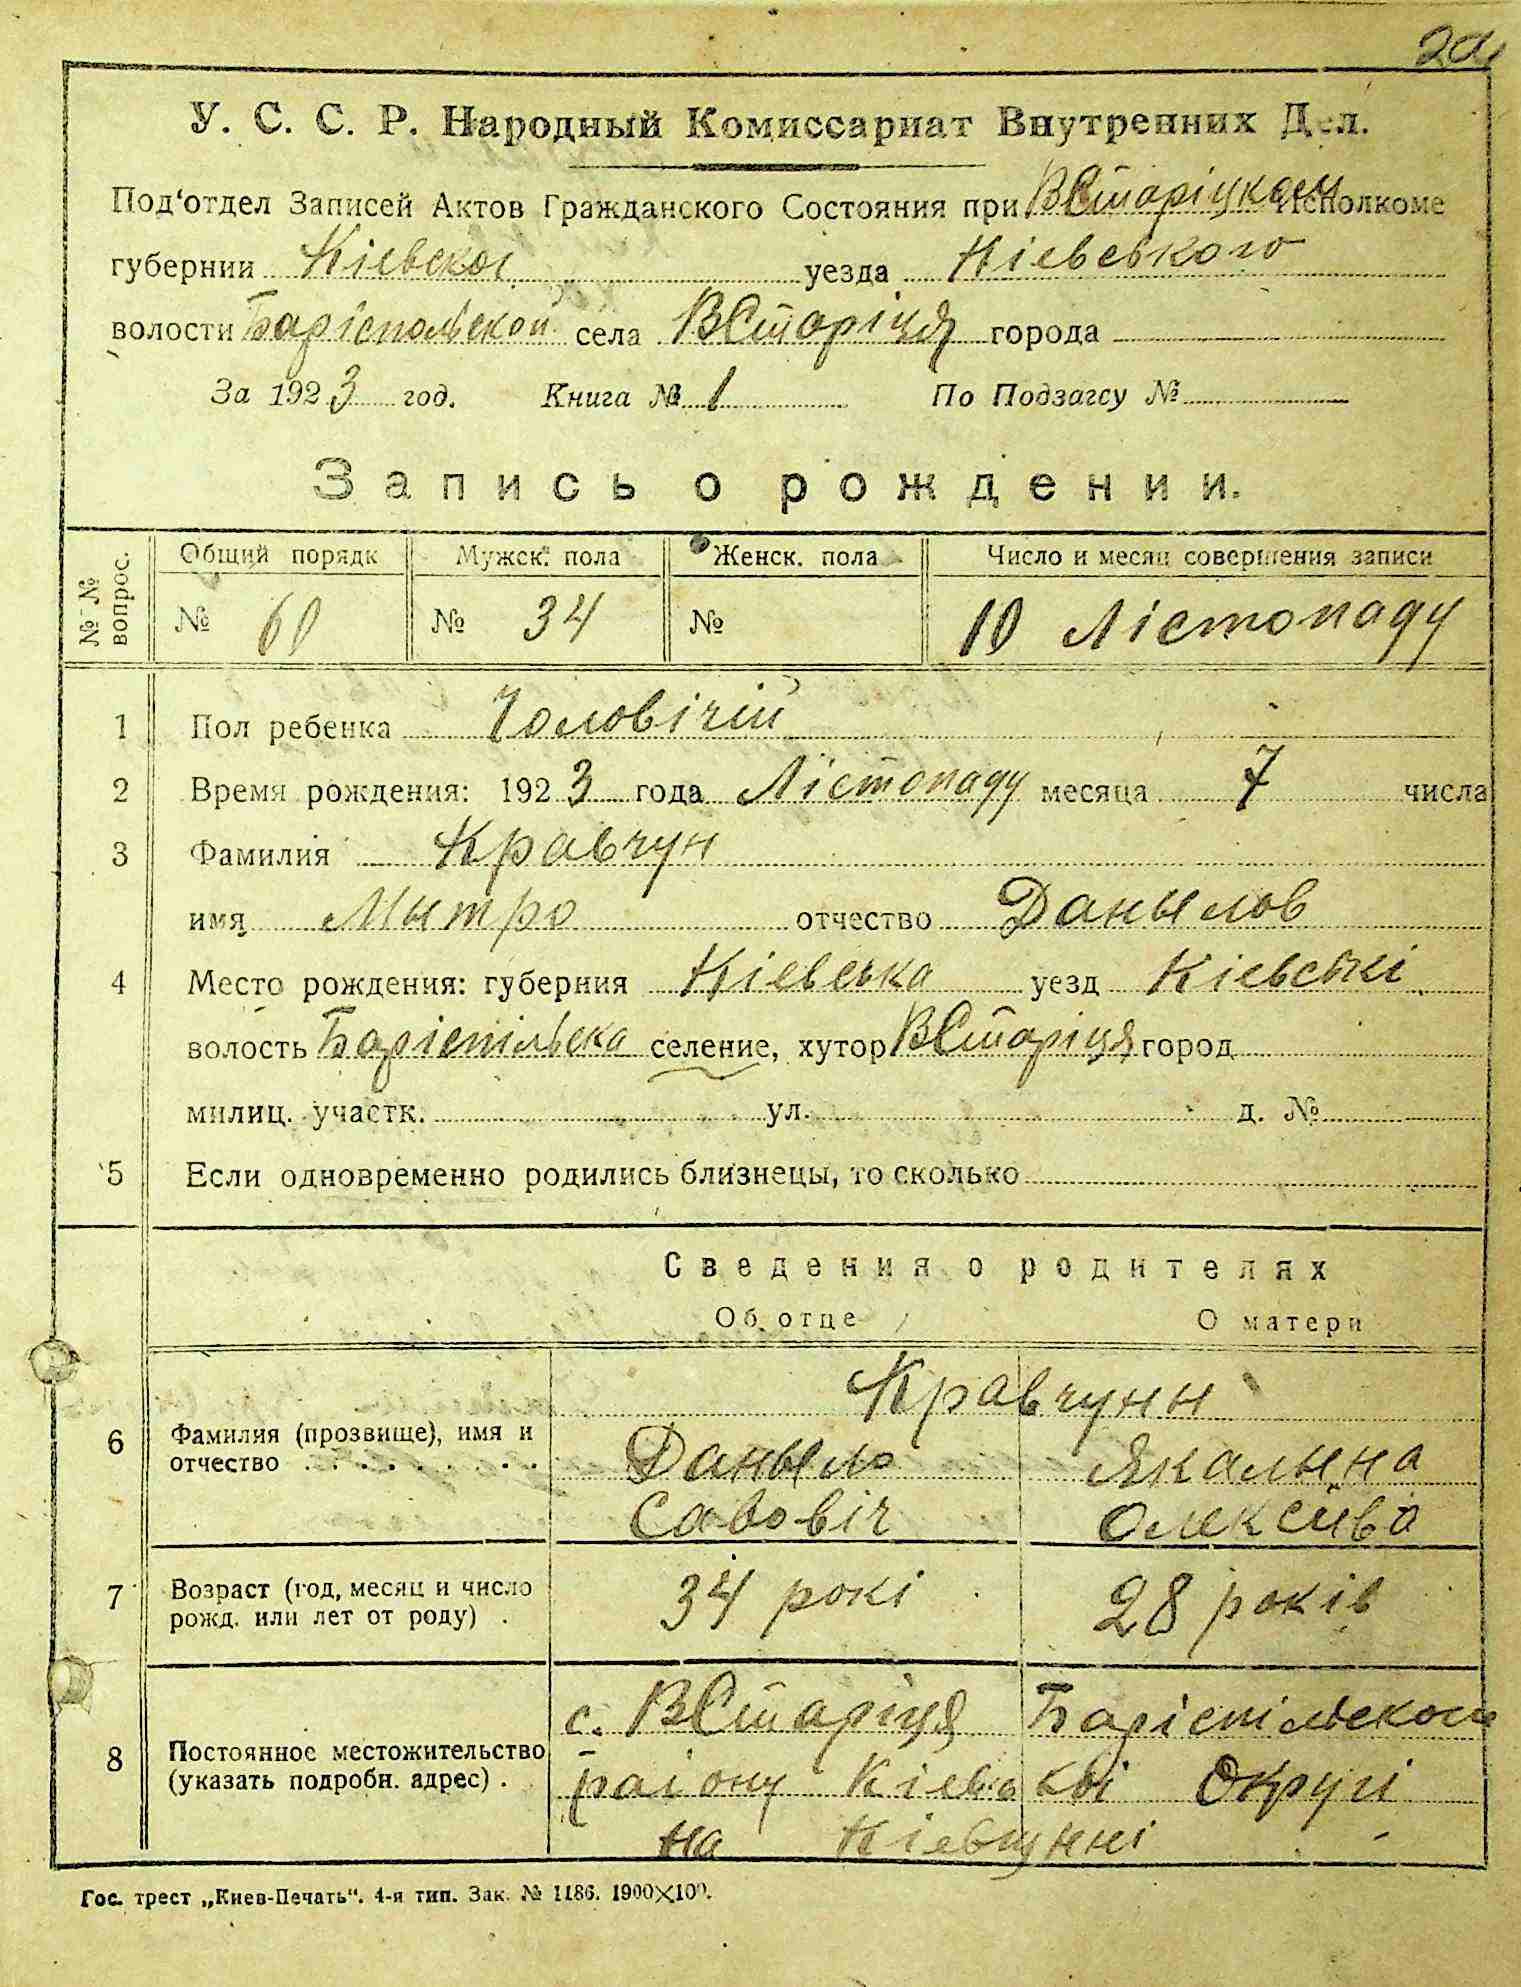 У. С. С. Р. Народный Комиссариат Внутренних Дел.
Под'отдел Записей Актов Гражданского Состояния при ВСтаріцком Исполкоме
губернии Кіевской уезда Кіевського
волости Барiспольской села ВСтаріця города
За 1923 год. Книга № 1 По Подзагсу №
Запись о рождении.
№ № вопрос. Общий порядк Мужск. пола Женск. пола Число и месяц совершения записи
№ 60 № 34 № 10 Лістопаду
1 Пол ребенка Чоловічій
2 Время рождения: 1923 года Лістопаду месяца 7 числа
3 Фамилия Кравчун
имя Мытро отчество Данылов
4 Место рождения: губерния Кіевська уезд Кіевські
волость Баріспільска селение, хутор ВСтаріця город
милиц. участк. ул. д. №
5 Если одновременно родились близнецы, то сколько
Сведения о родителях
Об отце О матери
Кравчуны
6 Фамилия (прозвище), имя и Даныло Якалына
отчество Савовіч Олексіива
7 Возраст (год, месяц и число 34 рокі 28 років
рожд. или лет от роду)
с. ВСтаріця Баріспільского
8 Постоянное местожительство раіону Кіевскоі Округі
(указать подробн. адрес) на Кіевщині
Гос. трест „Киев-Печать“. 4-я тип. Зак. № 1186. 1900×100.